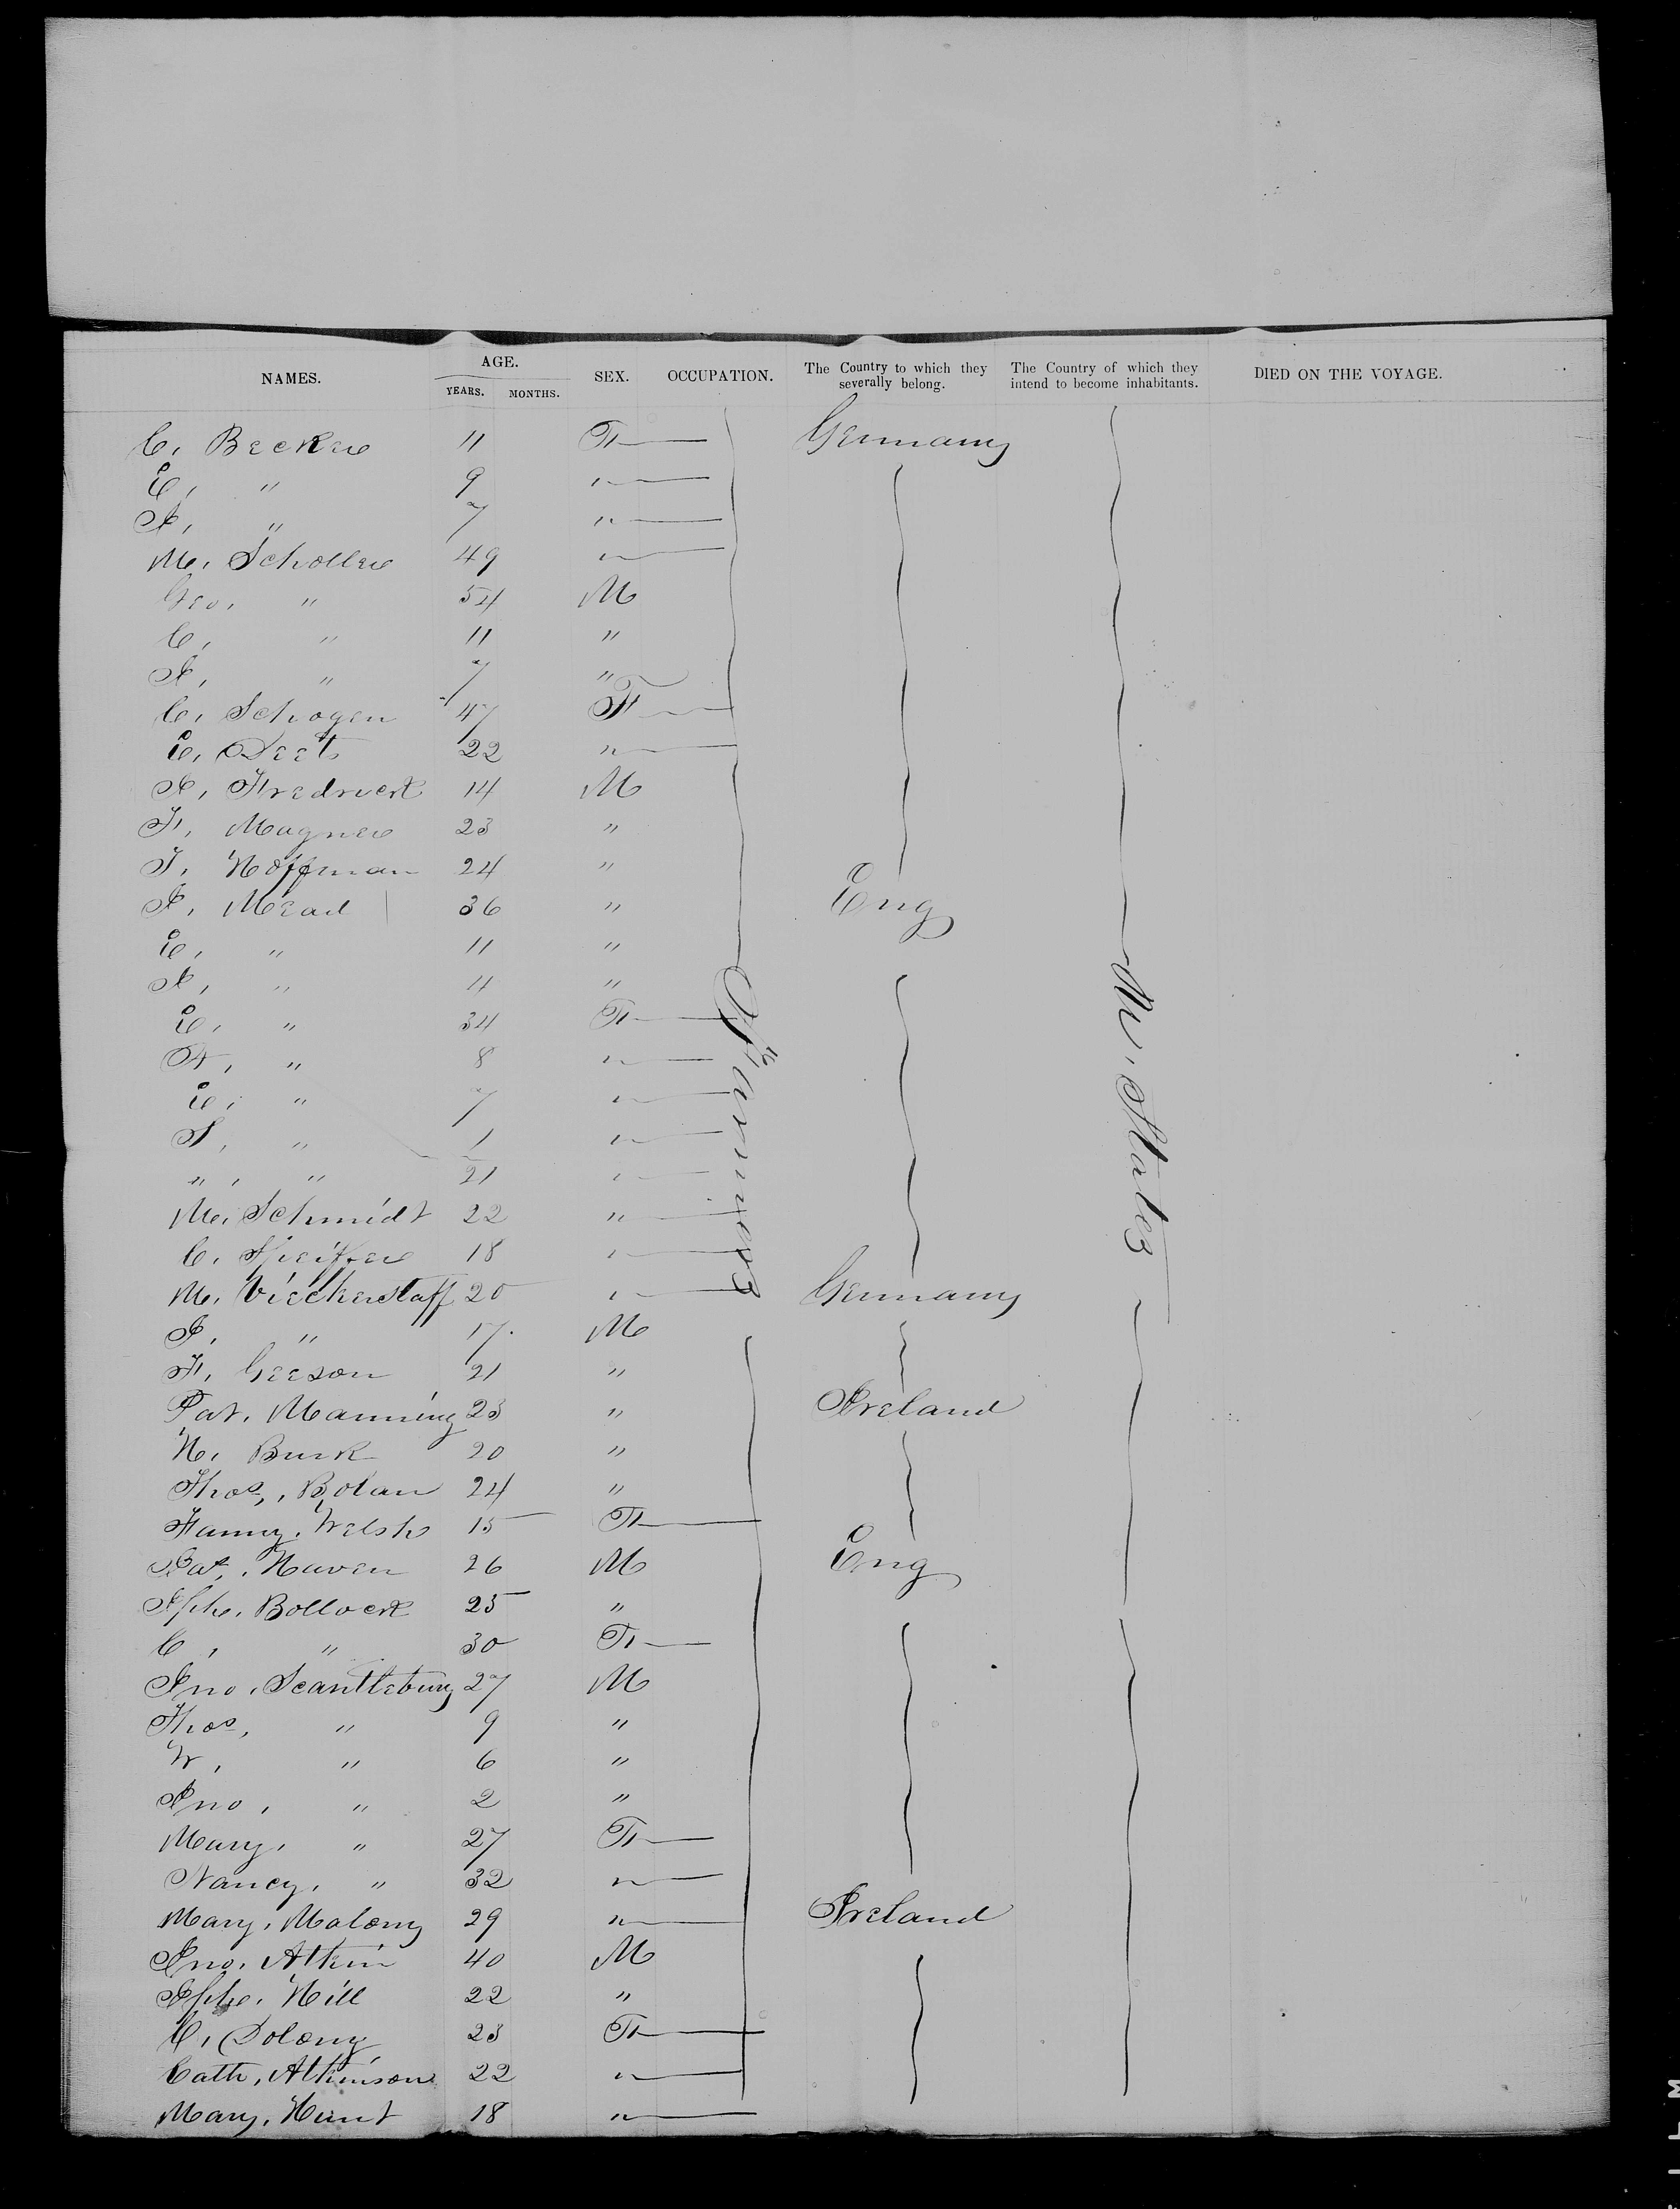 NAMES. AGE. YEARS. MONTHS. SEX. OCCUPATION. The Country to which they severally belong. The Country of which they intend to become inhabitants. DIED ON THE VOYAGE.
C, Becker 11 F Germany
E, " 9 "
A, " 7 "
M, Scholler 49 "
Geo, " 54 M
C, " 11 "
A, " 7 "
C, Schogen 47 F
E, Deets 22 "
A, Fredrick 14 M
F, Magner 23 "
J, Hoffman 24 "
J, Mead 36 " Eng
E, " 11 "
A, " 4 "
E, " 34 F
F, " 8 "
E, " 7 "
S, " 1 "
" , " 21 "
M, Schmidt 22 "
C, Pfeiffer 18 "
M, Vieckerstaff 20 " Germany
J, " 17 M
F, Geeson 21 "
Pat, Manning 23 " Ireland
H, Burk 20 "
Thos, Bolan 24 "
Fanny, Welsh 15 F
Pat, Haven 26 M Eng
Jph, Bollock 25 "
C, " 30 F
Jno, Scantlebury 27 M
Thos, " 9 "
W, " 6 "
Jno, " 2 "
Mary, " 27 F
Nancy, " 32 "
Mary, Malony 29 " Ireland
Jno, Atkin 40 M
Jph, Hill 22 "
C, Dolony 23 F
Cath, Atkinson 22 "
Mary, Hunt 18 "
Farmers
U. States